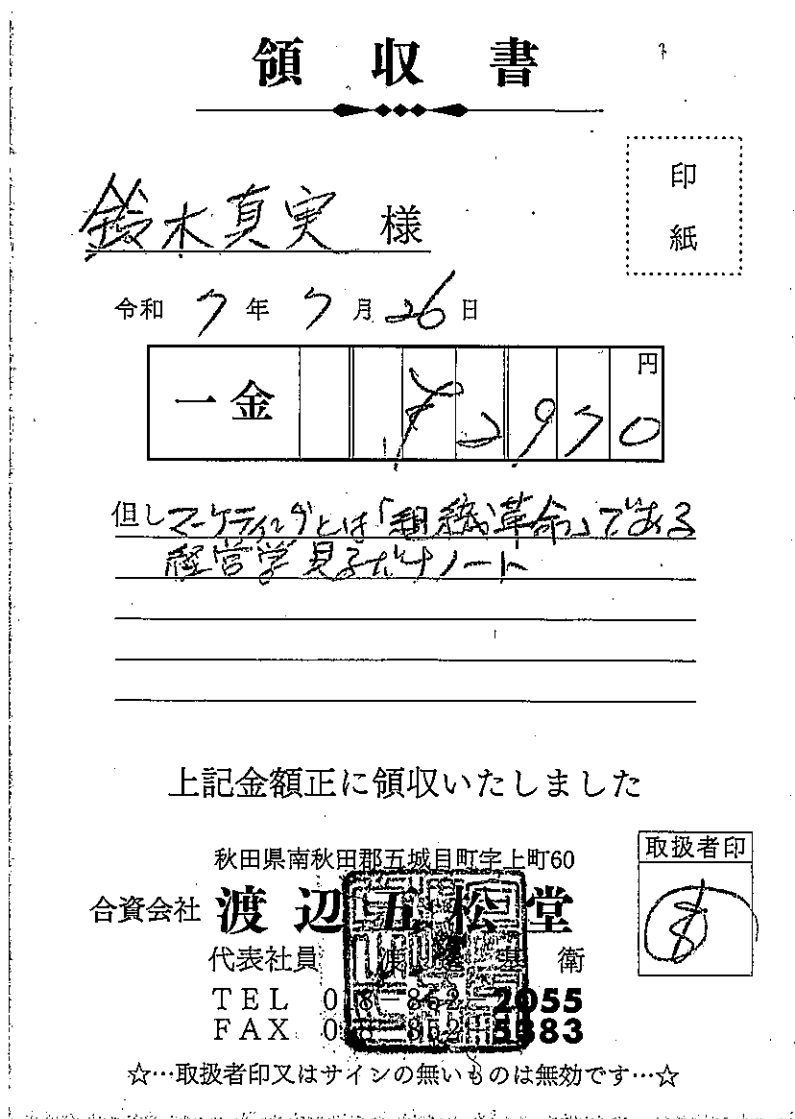 領収書
印紙
鈴木真実 様
令和 7 年 7 月 26 日
円
一金 ¥2970
但し マーケティングとは「組織革命」である
経営学見るだけノート
上記金額正に領収いたしました
取扱者印
秋田県南秋田郡五城目町字上町60
合資会社 渡辺五松堂
代表社員 渡 基衛
TEL 018-852-2055
FAX 018-852-5583
☆…取扱者印又はサインの無いものは無効です…☆